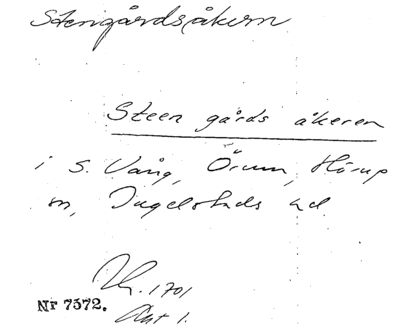 Stengårdsåkern
Steen gårds åkeren
i S. Vång, Örum, Hörup
sn, Ingelstads hd
1701
Akt 1.
Nr 7572.